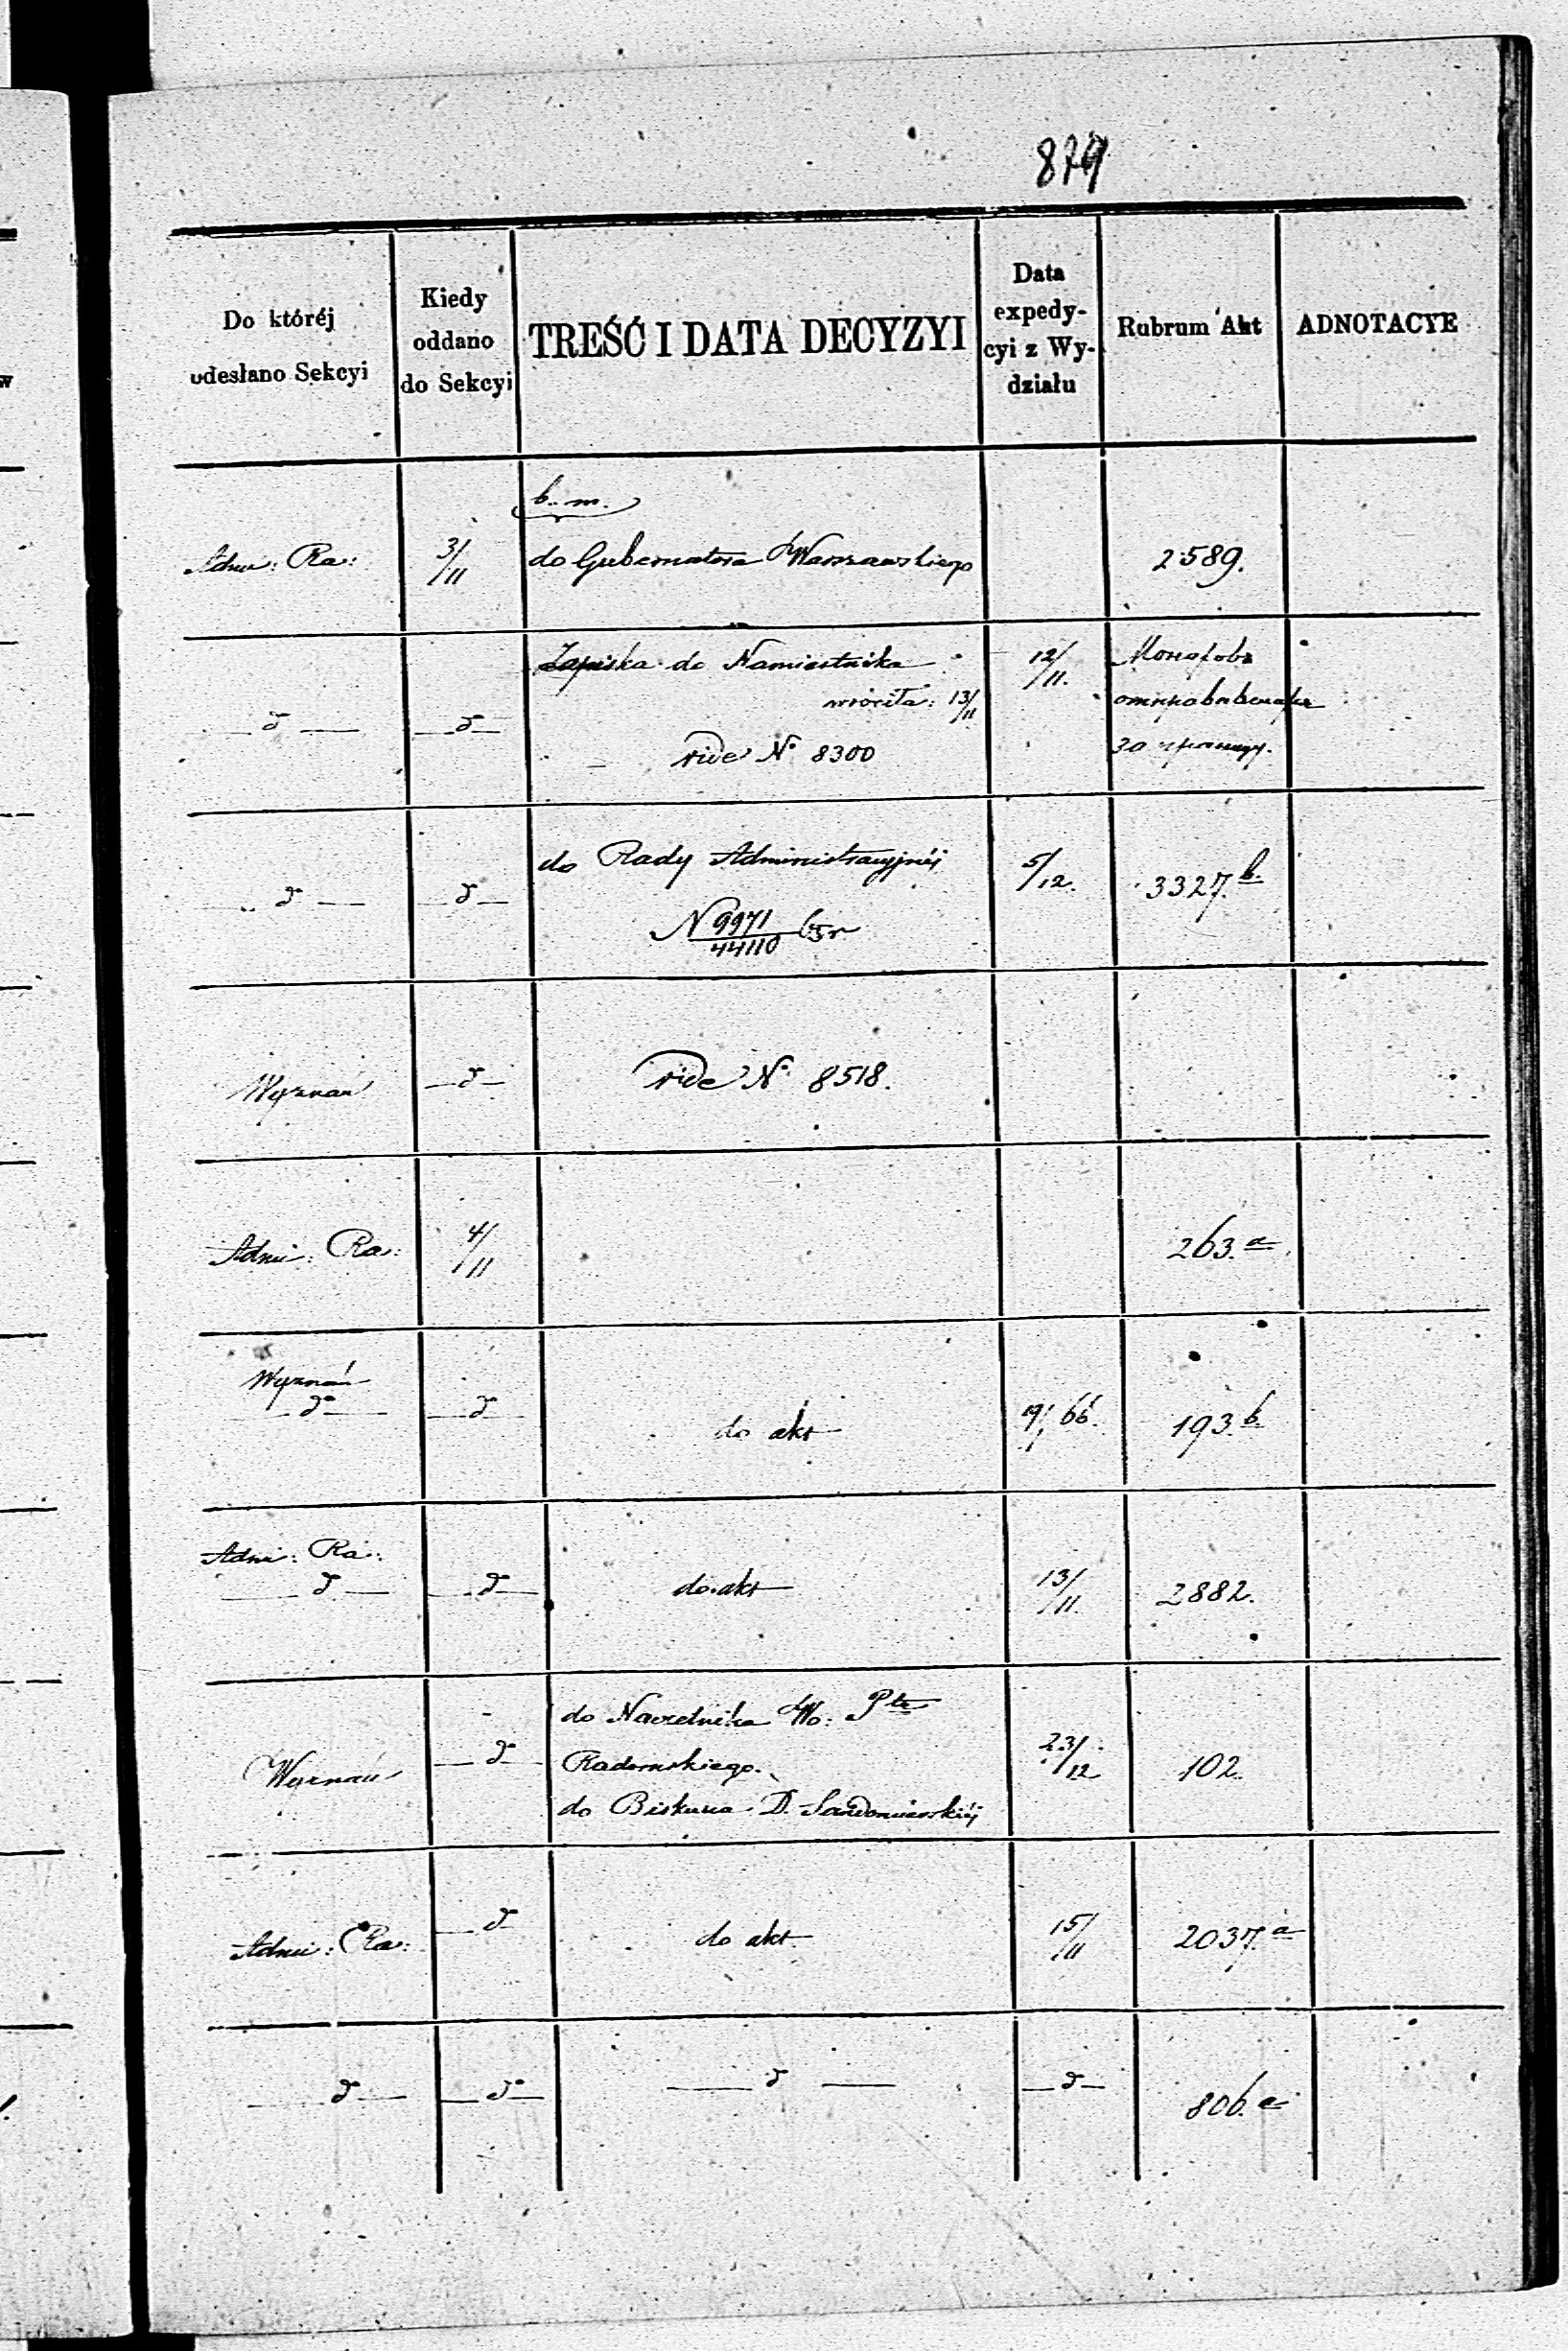 879
Do któréj odesłano Sekcyi
Kiedy oddano do Sekcyi
TREŚĆ I DATA DECYZYI
Data expedycyi z Wydziału
Rubrum Akt
ADNOTACYE
b. m.
Adm: Ra: 3/11 do Gubernatora Warszawskiego 2589.
Zapiska do Namiestnika 12/11.
wróciła: 13/11
— d — — d — vide N° 8300 за границу.
do Rady Administracyjnéj 5/12. 3327. b.
— d — — d —
N 9971/44110 65 r
Wyznań — d — vide N° 8518.
Adm: Ra: 4/11 263. a
Wyznań
— d° — — d — do akt 19/1 66. 193. b.
Adm: Ra:
— d — — d — do akt 13/11. 2882.
do Naczelnika Wo: Ptu
Wyznań — d° — Radomskiego. 23/12 102.
do Biskupa D. Sandomierskiéj
Adm: Ra: — d — do akt 15/11 2037. a
— d — — d° — — d — — d — 806. a